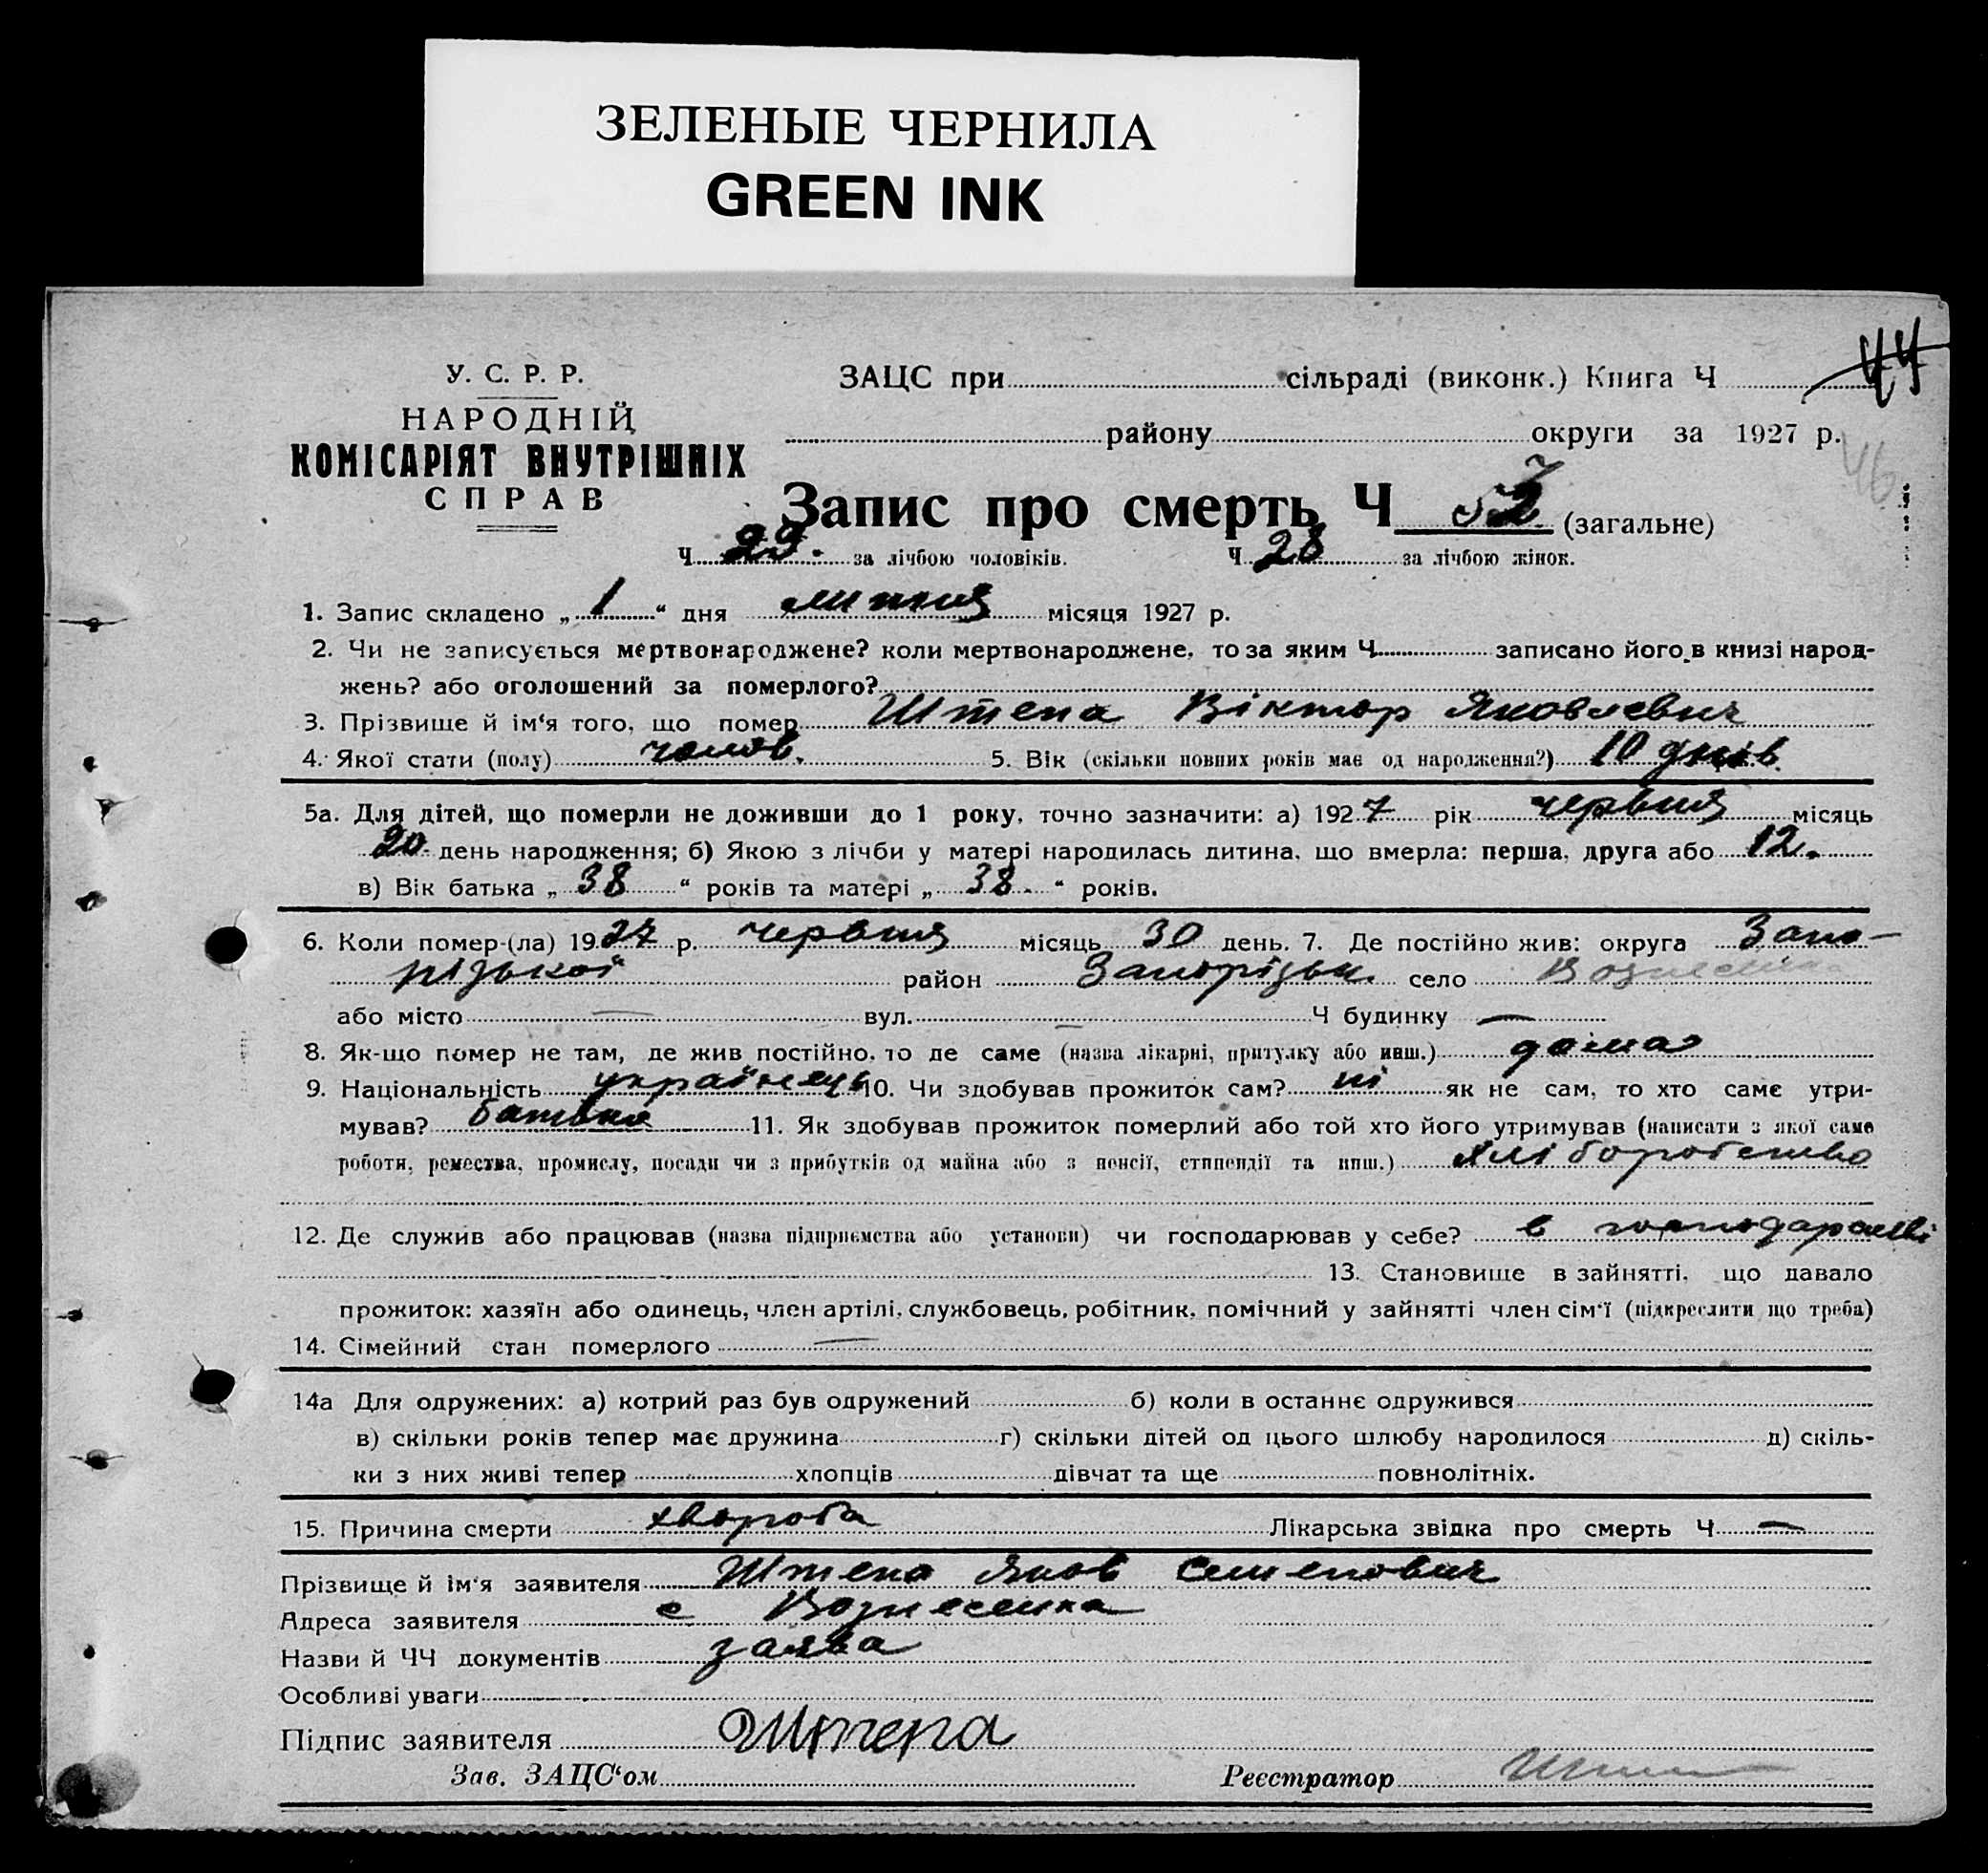 ЗЕЛЕНЫЕ ЧЕРНИЛА
GREEN INK
У. С. Р. Р.
НАРОДНІЙ
КОМІСАРІЯТ ВНУТРІШНІХ
СПРАВ
ЗАЦС при сільраді (виконк.) Книга Ч 44
району округи за 1927 р.
46
Запис про смерть Ч (загальне)
Ч 29. за лічбою чоловіків. Ч 28 за лічбою жінок.
1. Запис складено „ 1 “ дня липня місяця 1927 р.
2. Чи не записується мертвонароджене? коли мертвонароджене, то за яким Ч записано його в книзі народ-
жень? або оголошений за померлого?
3. Прізвище й ім‘я того, що помер Штепа Віктор Яковлевич
4. Якої стати (полу) чолов. 5. Вік (скільки повних років має од народження?) 10 днів
5а. Для дітей, що померли не доживши до 1 року, точно зазначити: а) 1927 рік червня місяць
20 день народження; б) Якою з лічби у матері народилась дитина, що вмерла: перша, друга або 12.
в) Вік батька „ 38 “ років та матері „ 38. “ років.
6. Коли помер-(ла) 1927 р. червня місяць 30 день. 7. Де постійно жив: округа Запо-
різької район Запорізьк. село Вознесенка
або місто — вул. — Ч будинку —
8. Як-що помер не там, де жив постійно, то де саме (назва лікарні, притулку або инш.) дома
9. Національність українець 10. Чи здобував прожиток сам? ні як не сам, то хто саме утри-
мував? батько 11. Як здобував прожиток померлий або той хто його утримував (написати з якої саме
роботи, ремества, промислу, посади чи з прибутків од майна або з пенсії, стипендії та инш.) хліборобство
12. Де служив або працював (назва підприємства або установи) чи господарював у себе? в господарстві
13. Становище в зайнятті, що давало
прожиток: хазяїн або одинець, член артілі, службовець, робітник, помічний у зайнятті член сім‘ї (підкреслити що треба)
14. Сімейний стан померлого —
14а Для одружених: а) котрий раз був одружений б) коли в останнє одружився
в) скільки років тепер має дружина г) скільки дітей од цього шлюбу народилося д) скіль-
ки з них живі тепер хлопців дівчат та ще повнолітніх.
15. Причина смерти хвороба Лікарська звідка про смерть Ч —
Прізвище й ім‘я заявителя Штепа Яков Семенович
Адреса заявителя с Вознесенка
Назви й ЧЧ документів заява
Особливі уваги
Підпис заявителя Штепа
Зав. ЗАЦС‘ом Реєстратор